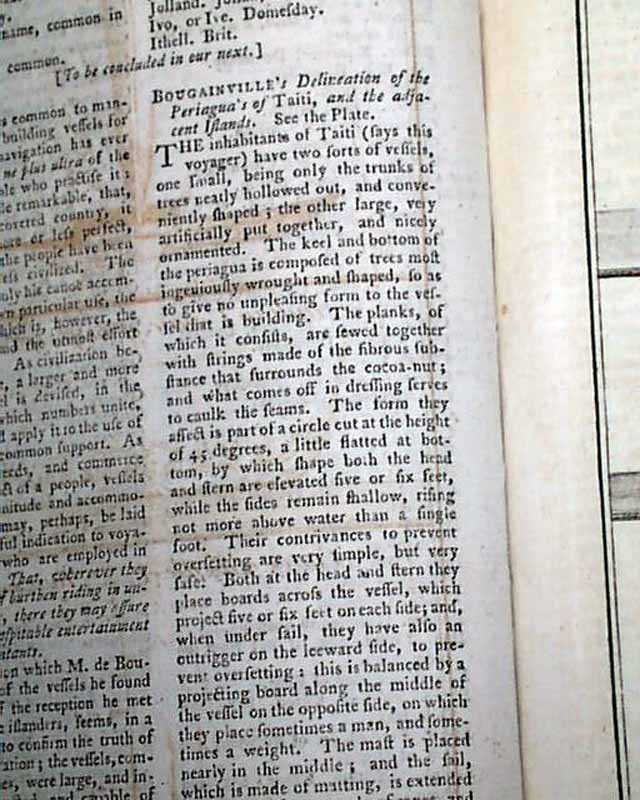 name, common in
common.
s common to man-
building veſſels for
navigation has ever
ne plus ultra of the
ple who practiſe it;
le remarkable, that,
covered country, it
more or leſs perfect,
the people have been
leſs civilized. The
only his canoe accom-
wn particular uſe, the
which is, however, the
and the utmoſt effort
As civilization be-
, a larger and more
el is deviſed, in the
which numbers unite,
d apply it to the uſe of
common ſupport. As
eeds, and commerce
ct of a people, veſſels
nitude and accommo-
may, perhaps, be laid
ful indication to voya-
who are employed in
That, wherever they
f burthen riding in un-
, there they may aſſure
oſpitable entertainment
itants.
on which M. de Bou-
of the veſſels he found
f the reception he met
e iſlanders, ſeems, in a
to confirm the truth of
ation; the veſſels, com-
es, were large, and in-
and capable of
Jolland.
Ivo, or Ive. Domeſday.
Ithell. Brit.
[To be concluded in our next.]
BOUGAINVILLE's Delineation of the
Periagua's of Taiti, and the adja-
cent Iſlands. See the Plate.
THE inhabitants of Taiti (ſays this
voyager) have two ſorts of veſſels,
one ſmall, being only the trunks of
trees neatly hollowed out, and conve-
niently ſhaped; the other large, very
artificially put together, and nicely
ornamented. The keel and bottom of
the periagua is compoſed of trees moſt
ingeniouſly wrought and ſhaped, ſo as
to give no unpleaſing form to the veſ-
ſel that is building. The planks, of
which it conſiſts, are ſewed together
with ſtrings made of the fibrous ſub-
ſtance that ſurrounds the cocoa-nut;
and what comes off in dreſſing ſerves
to caulk the ſeams. The form they
affect is part of a circle cut at the height
of 45 degrees, a little flatted at bot-
tom, by which ſhape both the head
and ſtern are elevated five or ſix feet,
while the ſides remain ſhallow, riſing
not more above water than a ſingle
foot. Their contrivances to prevent
overſetting are very ſimple, but very
ſafe. Both at the head and ſtern they
place boards acroſs the veſſel, which
project five or ſix feet on each ſide; and,
when under ſail, they have alſo an
outrigger on the leeward ſide, to pre-
vent overſetting: this is balanced by a
projecting board along the middle of
the veſſel on the oppoſite ſide, on which
they place ſometimes a man, and ſome-
times a weight. The maſt is placed
nearly in the middle; and the ſail,
which is made of matting, is extended